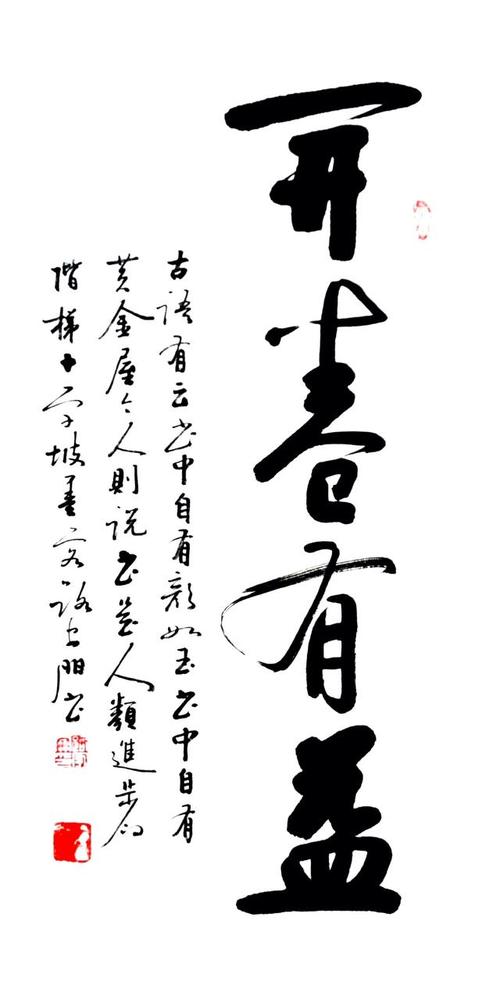 开卷有益
古语有云书中自有颜如玉书中自有
黄金屋今人則说书是人類進步的
階梯十字坡墨客路书